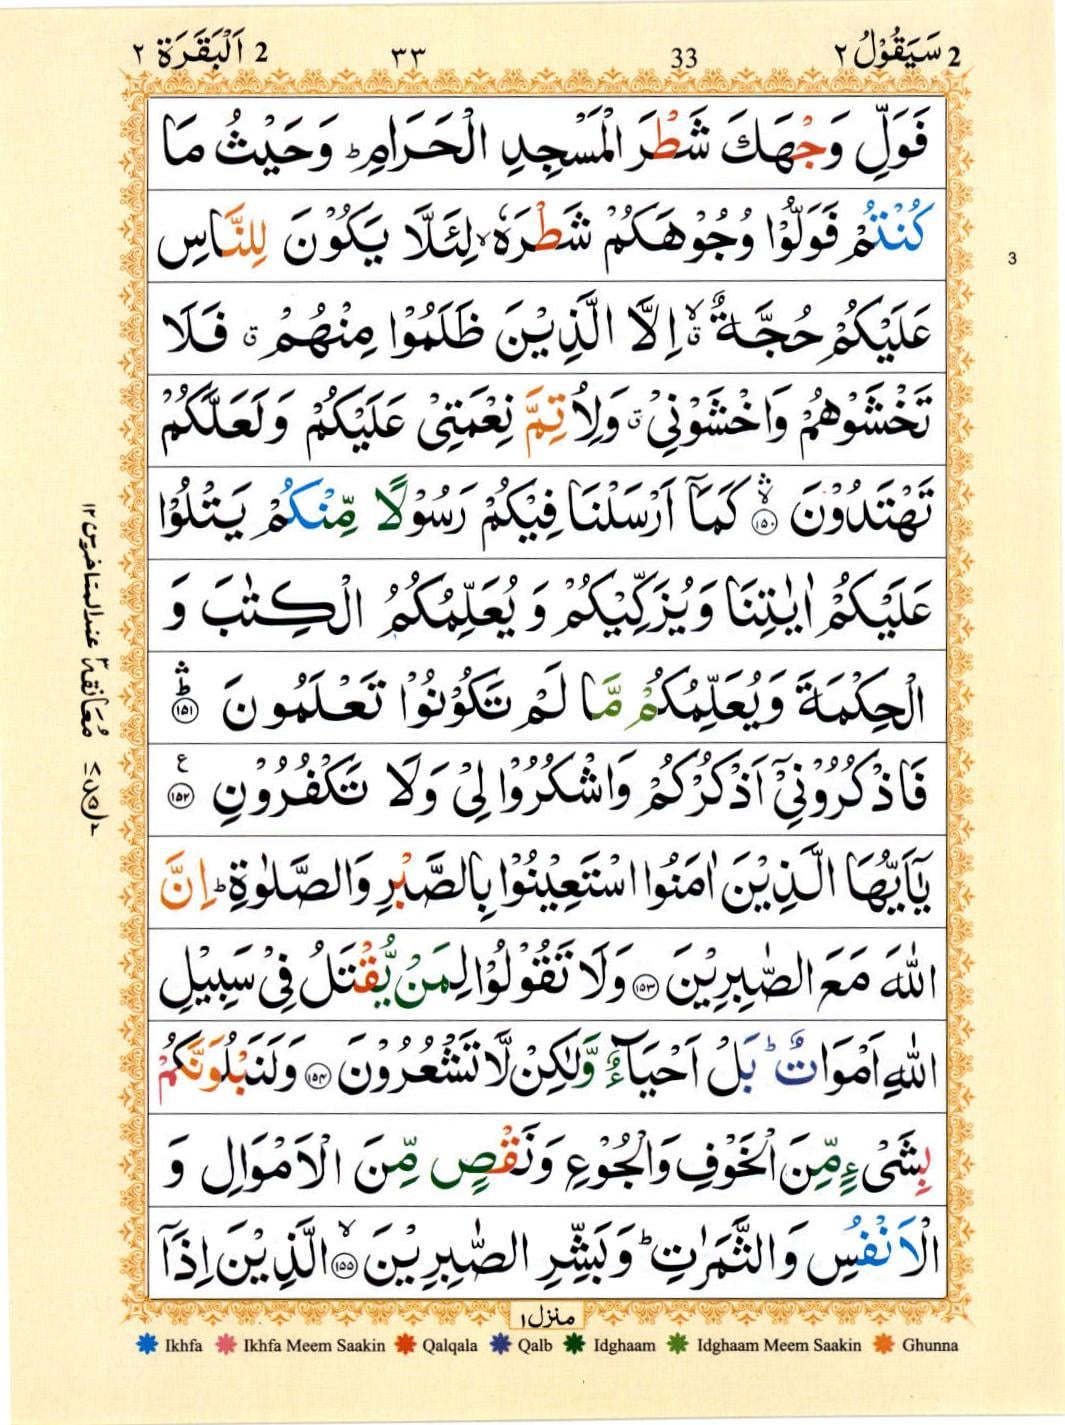 2 سَيَقُوْلُ ٢ 33 ٣٣ 2 اَلْبَقَرَة ٢
فَوَلِّ وَجْهَكَ شَطْرَ الْمَسْجِدِ الْحَرَامِ ؕ وَحَيْثُ مَا
كُنْتُمْ فَوَلُّوْا وُجُوْهَكُمْ شَطْرَهٗ ۙ لِئَلَّا يَكُوْنَ لِلنَّاسِ
3
عَلَيْكُمْ حُجَّةٌ ۙۗ اِلَّا الَّذِيْنَ ظَلَمُوْا مِنْهُمْ ۗ فَلَا
تَخْشَوْهُمْ وَاخْشَوْنِيْ ۗ وَلِاُتِمَّ نِعْمَتِيْ عَلَيْكُمْ وَلَعَلَّكُمْ
تَهْتَدُوْنَ ۙۛ ١٥٠ كَمَاۤ اَرْسَلْنَا فِيْكُمْ رَسُوْلًا مِّنْكُمْ يَتْلُوْا
عَلَيْكُمْ اٰيٰتِنَا وَيُزَكِّيْكُمْ وَ يُعَلِّمُكُمُ الْكِتٰبَ وَ
الْحِكْمَةَ وَيُعَلِّمُكُمْ مَّا لَمْ تَكُوْنُوْا تَعْلَمُونَ ؕۛ ١٥١
فَاذْكُرُوْنِيْۤ اَذْكُرْكُمْ وَاشْكُرُوْا لِيْ وَلَا تَكْفُرُوْنِ ع ١٥٢
يٰۤاَيُّهَا الَّذِيْنَ اٰمَنُوا اسْتَعِيْنُوْا بِالصَّبْرِ وَالصَّلٰوةِ ؕ اِنَّ
اللّٰهَ مَعَ الصّٰبِرِيْنَ ١٥٣ وَلَا تَقُوْلُوْا لِمَنْ يُّقْتَلُ فِيْ سَبِيْلِ
اللّٰهِ اَمْوَاتٌ ؕ بَلْ اَحْيَآءٌ وَّلٰكِنْ لَّا تَشْعُرُوْنَ ١٥٤ وَلَنَبْلُوَنَّكُمْ
بِشَيْءٍ مِّنَ الْخَوْفِ وَالْجُوْعِ وَنَقْصٍ مِّنَ الْاَمْوَالِ وَ
الْاَنْفُسِ وَالثَّمَرٰتِ ؕ وَبَشِّرِ الصّٰبِرِيْنَ ۙ ١٥٥ الَّذِيْنَ اِذَاۤ
منزل ١
معانقة ٣ عند المتاخرين ١٢
Ikhfa Ikhfa Meem Saakin Qalqala Qalb Idghaam Idghaam Meem Saakin Ghunna